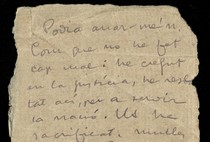 Podia anar-me'n,
Com que no he fet
cap mal i he cregut
en la justícia, he res
tat aquí a servir
la nació. Us he
sacrificat